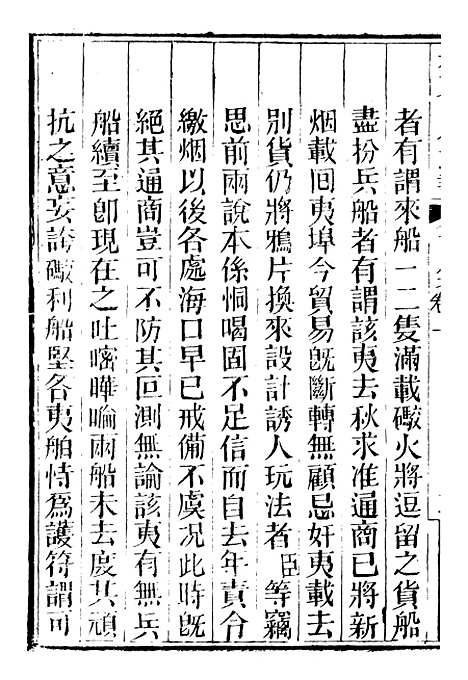 者有謂來船一二隻滿載礮火將逗留之貨船
盡扮兵船者有謂該夷去秋求准通商已將新
烟載囘夷埠今貿易旣斷轉無顧忌奸夷載去
別貨仍將鴉片換來設計誘人玩法者臣等竊
思前兩說本係恫喝固不足信而自去年責令
繳烟以後各處海口早已戒備不虞况此時旣
絕其通商豈可不防其叵測無論該夷有無兵
船續至卽現在之吐嘧嘩哈兩船未去度其頑
抗之意妄誇礮利船堅各夷舶恃爲護符謂可